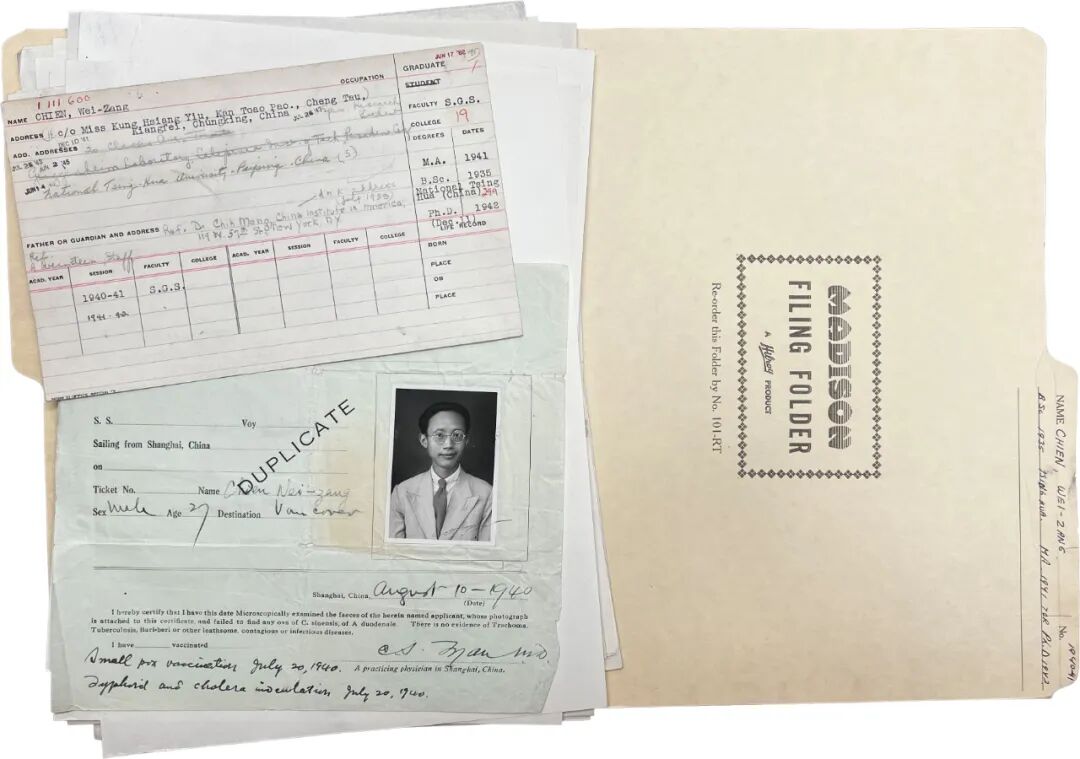 JUN 17 '62
1 111 600
OCCUPATION
GRADUATE
STUDENT
NAME CHIEN, Wei-Zang
FACULTY S.G.S.
ADDRESS c/o Miss Kung Hsiang Yiu, Kan Toao Pao., Cheng Tau,
Kiangfei, Chungking, China
COLLEGE 19
DEC 10 '41
ADD. ADDRESSES
DEGREES DATES
M.A. 1941
National Tsing Hua University - Peiping - China (S)
B.Sc. 1935
National Tsing
Hua (China)
Ph.D. 1942
(Dec.11)
FATHER OR GUARDIAN AND ADDRESS Ref. Dr. Chih Meng, China Institute in America,
119 W. 57th St., New York, NY
LIFE RECORD
Ref.
ACAD. YEAR SESSION FACULTY COLLEGE ACAD. YEAR SESSION FACULTY COLLEGE
BORN
PLACE
ON
PLACE
1940-41 S.G.S.
1941-42
S. S. Voy
Sailing from Shanghai, China
on
DUPLICATE
Ticket No. Name Chien Wei-zang
Sex Male Age 27 Destination Vancouver
Shanghai, China, August 10-1940
(Date)
I hereby certify that I have this date Microscopically examined the faeces of the herein named applicant, whose photograph
is attached to this certificate, and failed to find any ova of C. sinensis, of A duodenale. There is no evidence of Trachoma,
Tuberculosis, Beri-beri or other loathsome, contagious or infectious diseases.
I have vaccinated
A practicing physician in Shanghai, China.
Small pox vaccination July 20, 1940.
Typhoid and cholera inoculation July 20, 1940.
MADISON
FILING FOLDER
A PRODUCT
Re-order this Folder by No. 101-RT
NAME CHIEN, WEI-ZANG No.
B.Sc. 1935 TSING HUA. MA 1941 TOR Ph.D 1942